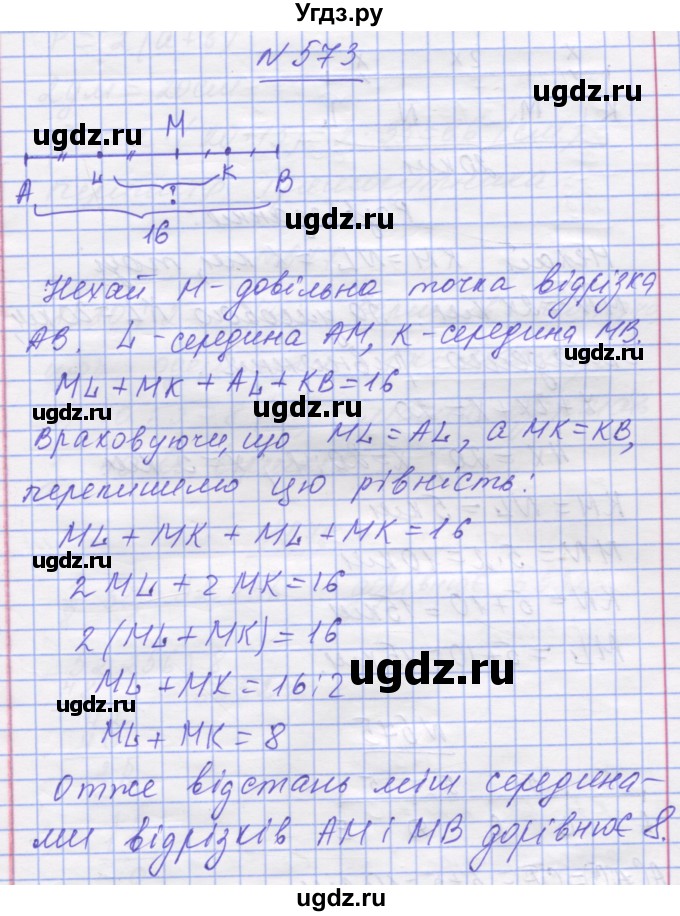 Угдз.ру
N 573
ugdz.ru
ugdz.ru
M
ugdz.ru
A L K B
?
ugdz.ru
16
Нехай М - довільна точка відрізка
АВ. L - середина АМ, К - середина МВ.
ugdz.ru
ML + MK + AL + KB = 16
ugdz.ru
ugdz.ru
Враховуючи, що ML = AL, а MK = KB,
перепишемо цю рівність:
ML + MK + ML + MK = 16
ugdz.ru
2 ML + 2 MK = 16
2 (ML + MK) = 16
ugdz.ru
ML + MK = 16 : 2
ugdz.ru
ML + MK = 8
Отже відстань міш середина-
ми відрізків АМ і МВ дорівнює 8.
ugdz.ru
ugdz.ru